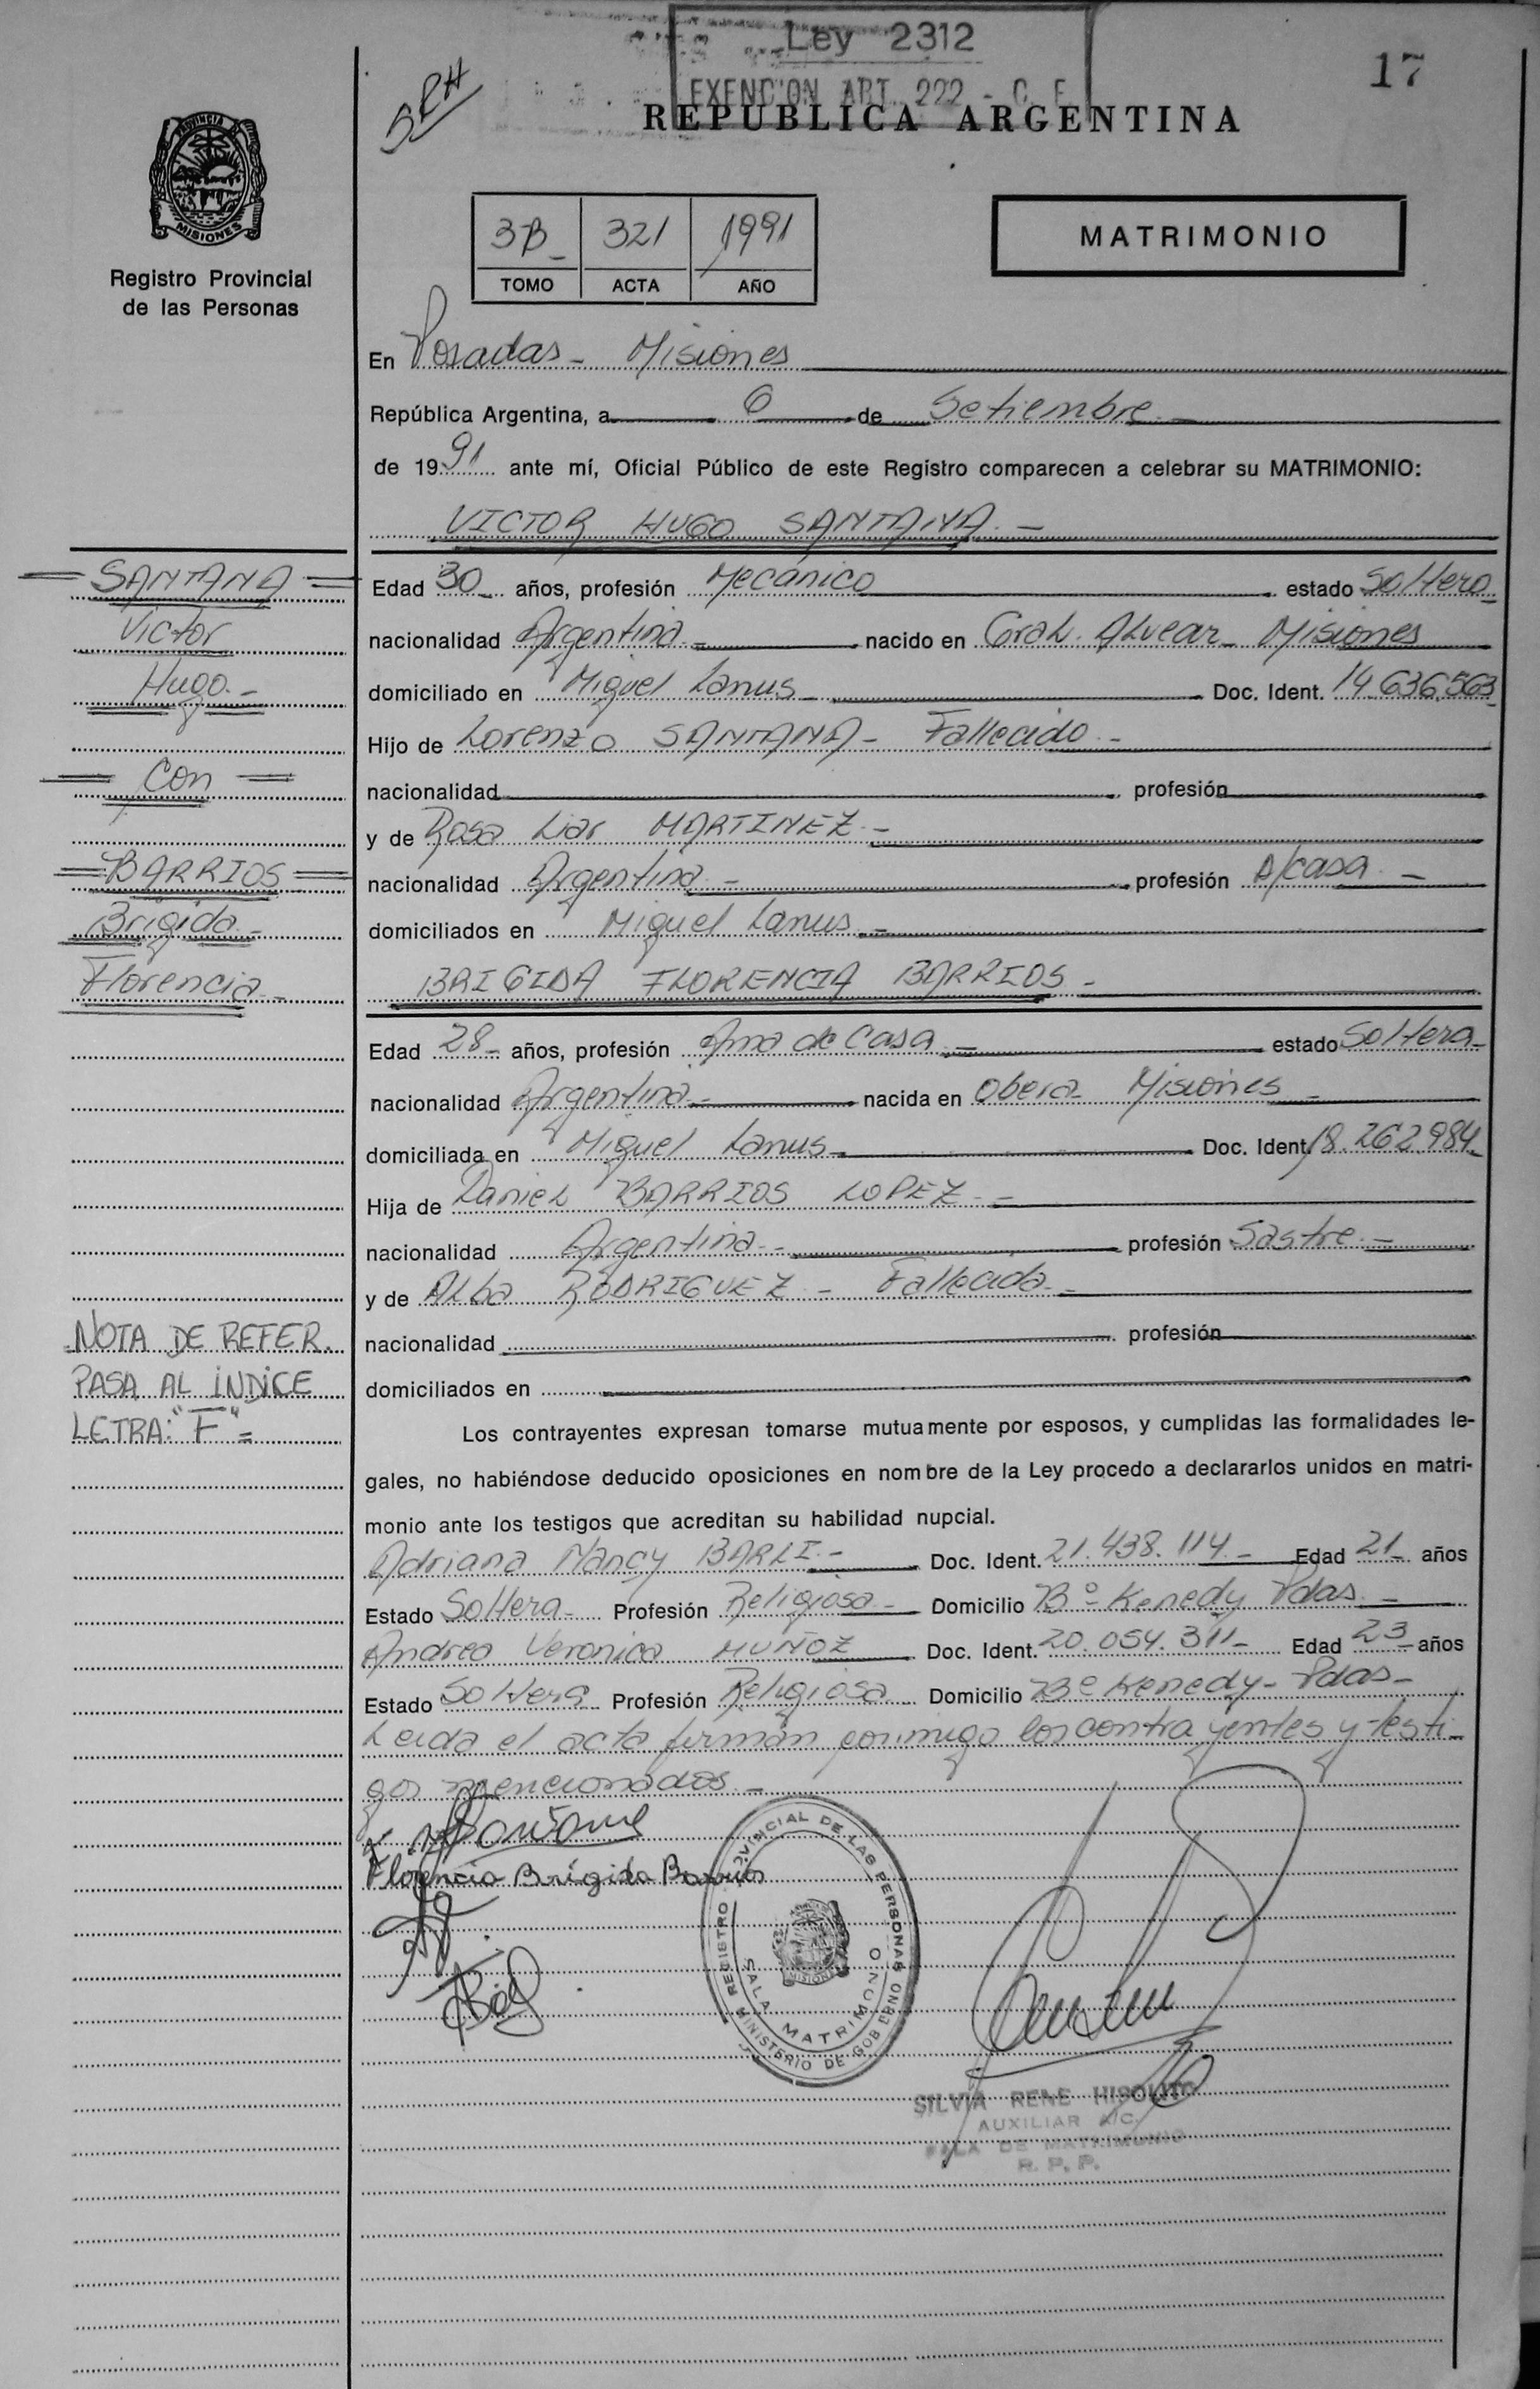 Ley 2312
EXENCION ART. 222 - C. F.
17
SRH
REPUBLICA ARGENTINA
PROVINCIA DE
MISIONES
Registro Provincial
de las Personas
3B 321 1991
TOMO ACTA AÑO
MATRIMONIO
En Posadas - Misiones
República Argentina, a 6 de Setiembre
de 1991 ante mí, Oficial Público de este Registro comparecen a celebrar su MATRIMONIO:
VICTOR HUGO SANTANA.-
SANTANA
Victor
Hugo.-
Con
BARRIOS
Brigida-
Florencia-
Edad 30 años, profesión Mecánico estado Soltero
nacionalidad Argentina.- nacido en Gral. Alvear - Misiones
domiciliado en Miguel Lanus Doc. Ident. 14.636.563
Hijo de Lorenzo SANTANA - Fallecido -
nacionalidad profesión
y de Rosa Liar MARTINEZ.-
nacionalidad Argentina - profesión A/casa -
domiciliados en Miguel Lanus -
BRIGIDA FLORENCIA BARRIOS -
Edad 28 - años, profesión Ama de Casa - estado Soltera-
nacionalidad Argentina- nacida en Obera - Misiones
domiciliada en Miguel Lanus Doc. Ident. 18.262.984
Hija de Daniel BARRIOS LOPEZ.-
nacionalidad Argentina - profesión Sastre -
y de Alba RODRIGUEZ - Fallecida-
nacionalidad profesión
domiciliados en
NOTA DE REFER.
PASA AL INDICE
LETRA: "F" =
Los contrayentes expresan tomarse mutuamente por esposos, y cumplidas las formalidades le-
gales, no habiéndose deducido oposiciones en nombre de la Ley procedo a declararlos unidos en matri-
monio ante los testigos que acreditan su habilidad nupcial.
Adriana Nancy BARLI.- Doc. Ident. 21.438.114 - Edad 21 años
Estado Soltera - Profesión Religiosa - Domicilio Bº Kenedy Pdas -
Andrea Veronica MUÑOZ Doc. Ident. 20.054.311 - Edad 23 años
Estado Soltera Profesión Religiosa Domicilio Bº Kenedy - Pdas -
Leida el acta firman conmigo los contrayentes y testi-
gos mencionados -
Florencia Brígida Barrios
REGISTRO PROVINCIAL DE LAS PERSONAS
MINISTERIO DE GOBIERNO
SALA MATRIMONIO
MISIONES
SILVIA RENE HIPOLITO
AUXILIAR A/C.
SALA DE MATRIMONIO
R. P. P.